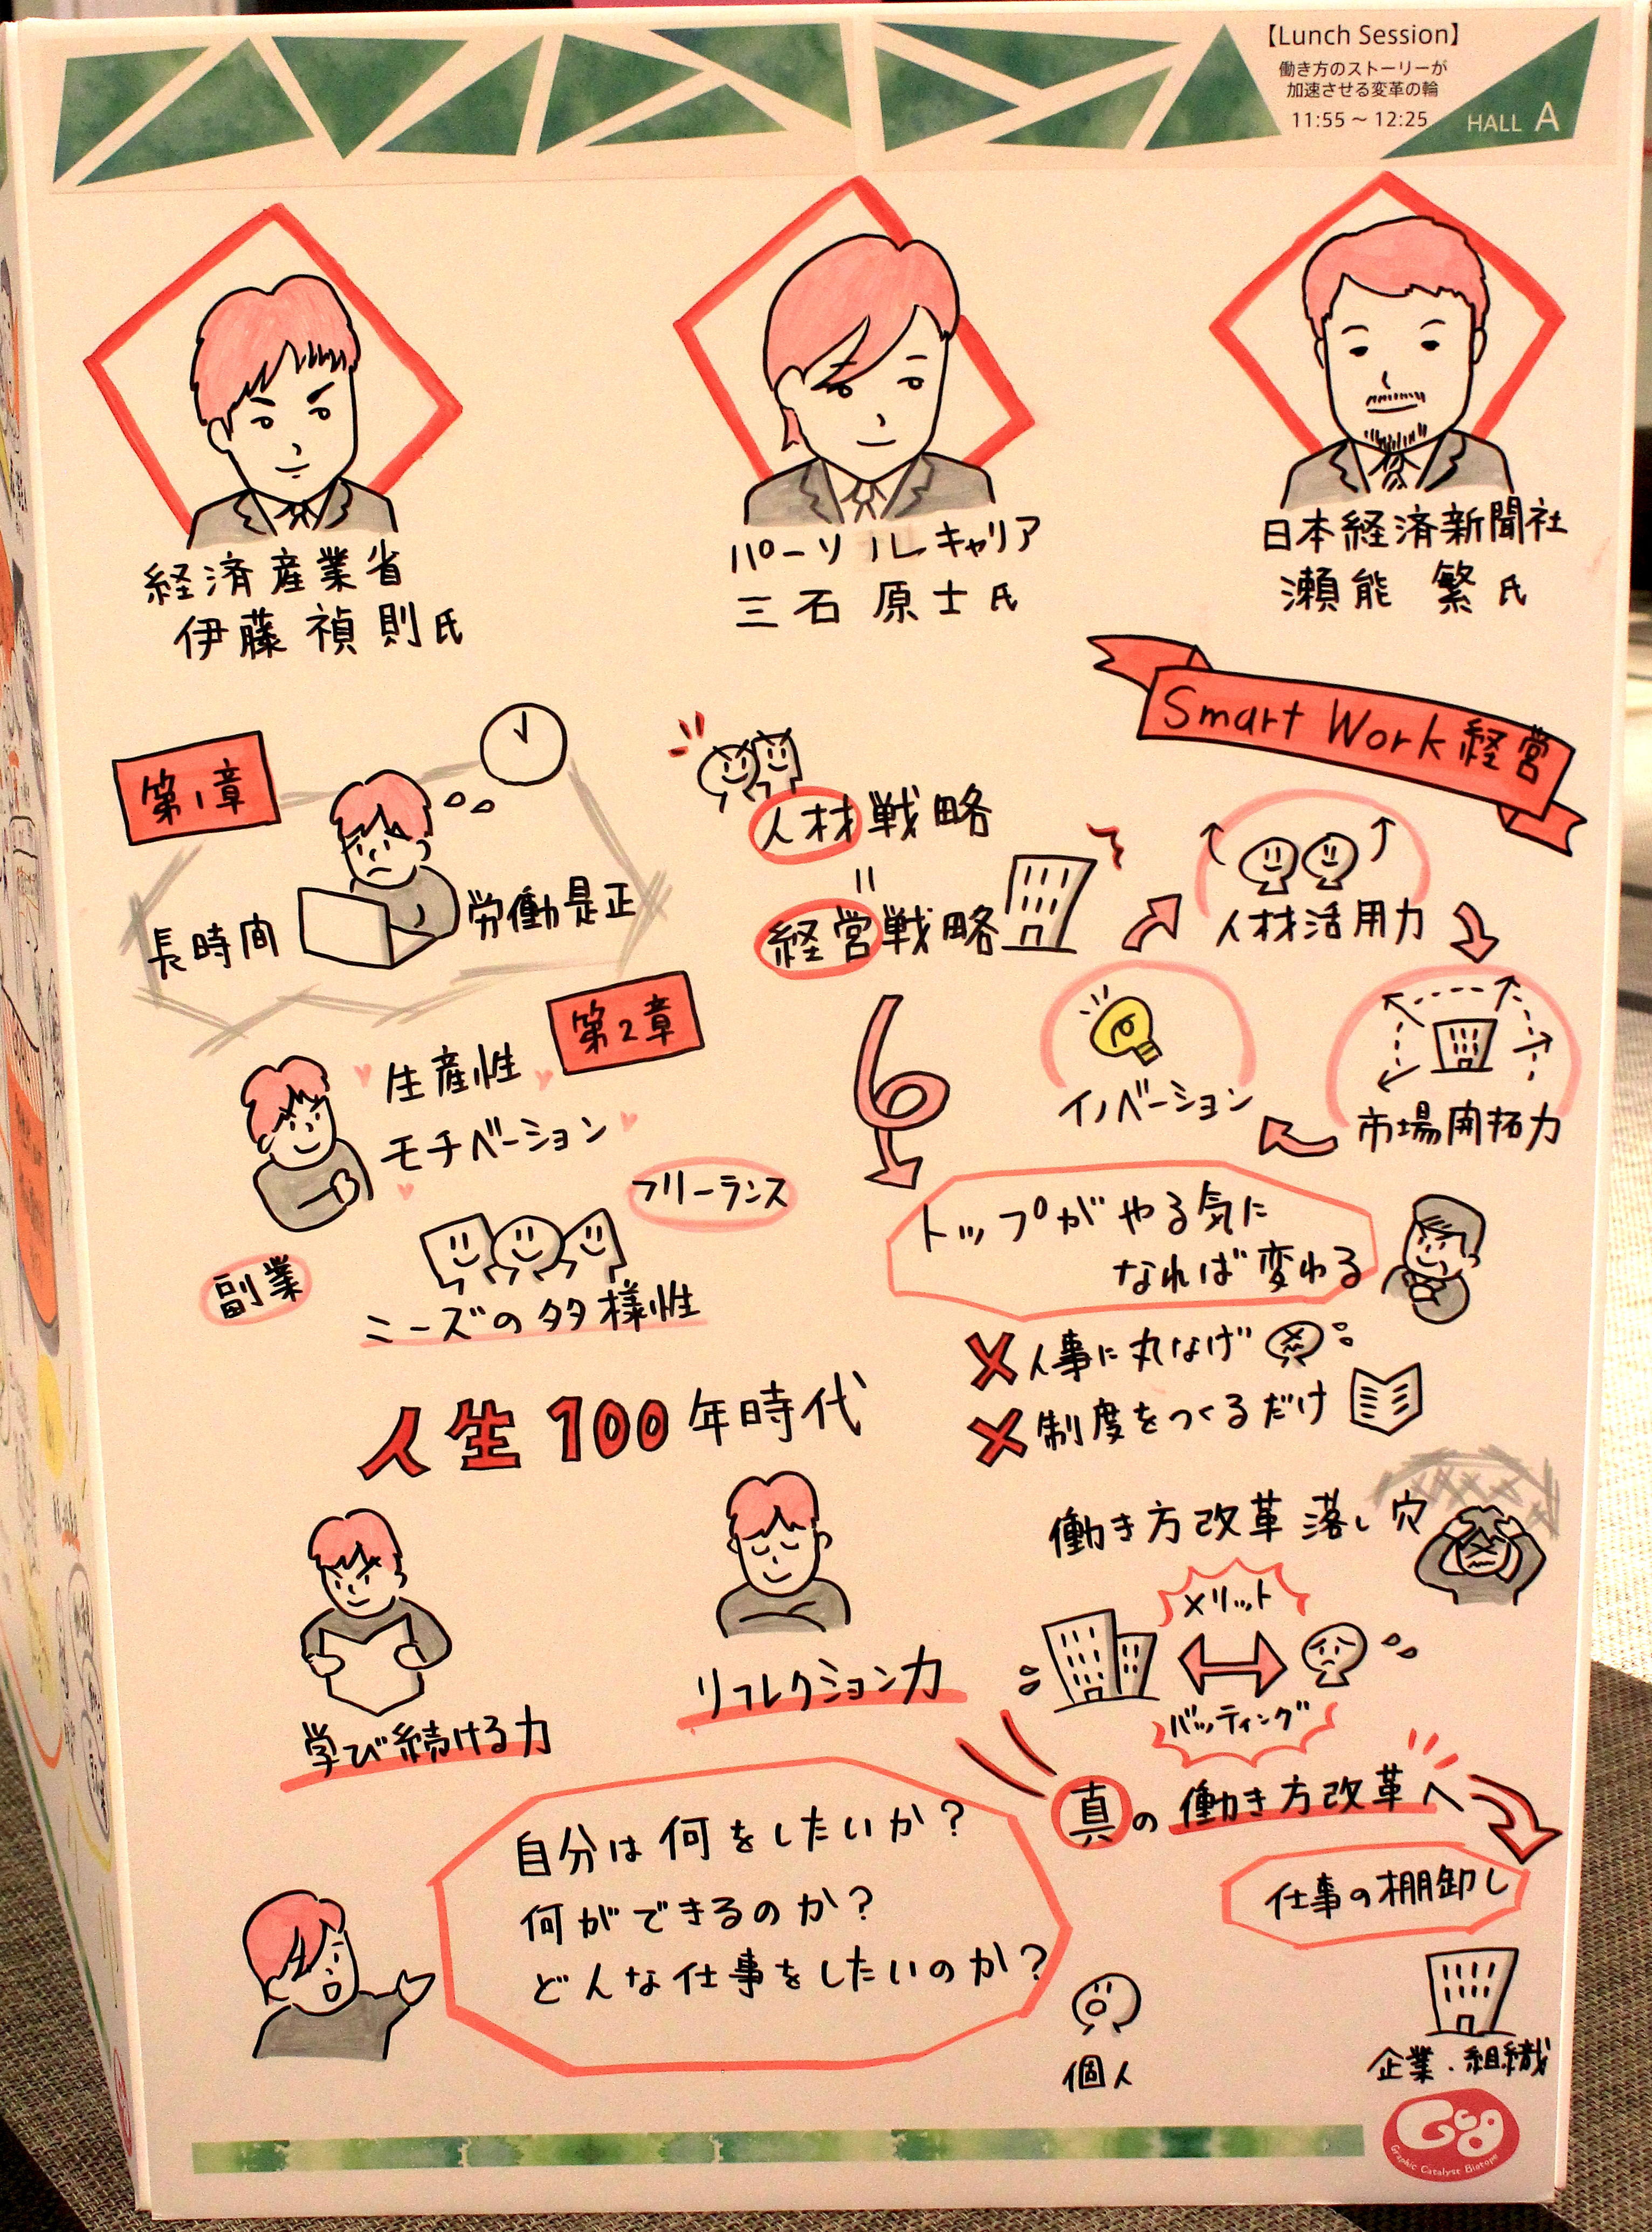 【Lunch Session】
働き方のストーリーが
加速させる変革の輪
11:55 ~ 12:25
HALL A
経済産業省
伊藤 禎則氏
パーソルキャリア
三石 原士氏
日本経済新聞社
瀬能 繁氏
第1章
長時間 労働是正
第2章
生産性
モチベーション
フリーランス
副業
ニーズの多様性
人材戦略
=
経営戦略
Smart Work 経営
人材活用力
市場開拓力
イノベーション
トップがやる気に
なれば変わる
✗人事に丸なげ
✗制度をつくるだけ
人生100年時代
学び続ける力
リフレクション力
働き方改革 落し穴
メリット
バッティング
真の働き方改革へ
仕事の棚卸し
自分は何をしたいか?
何ができるのか?
どんな仕事をしたいのか?
個人
企業・組織
Gcg
Graphic Catalyst Biotope